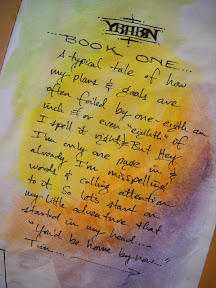 YBHBN
BOOK ONE...
A typical tale of how
my plans & goals are
often foiled by one-eigth an
inch & or even "eighth" (if
I spell it right) But Hey
I'm only one page in &
already I'm misspelling
words & calling attention
to it. So lets start on
my little adventure that
started in my head....
"You'd be home by now..."
Tim...